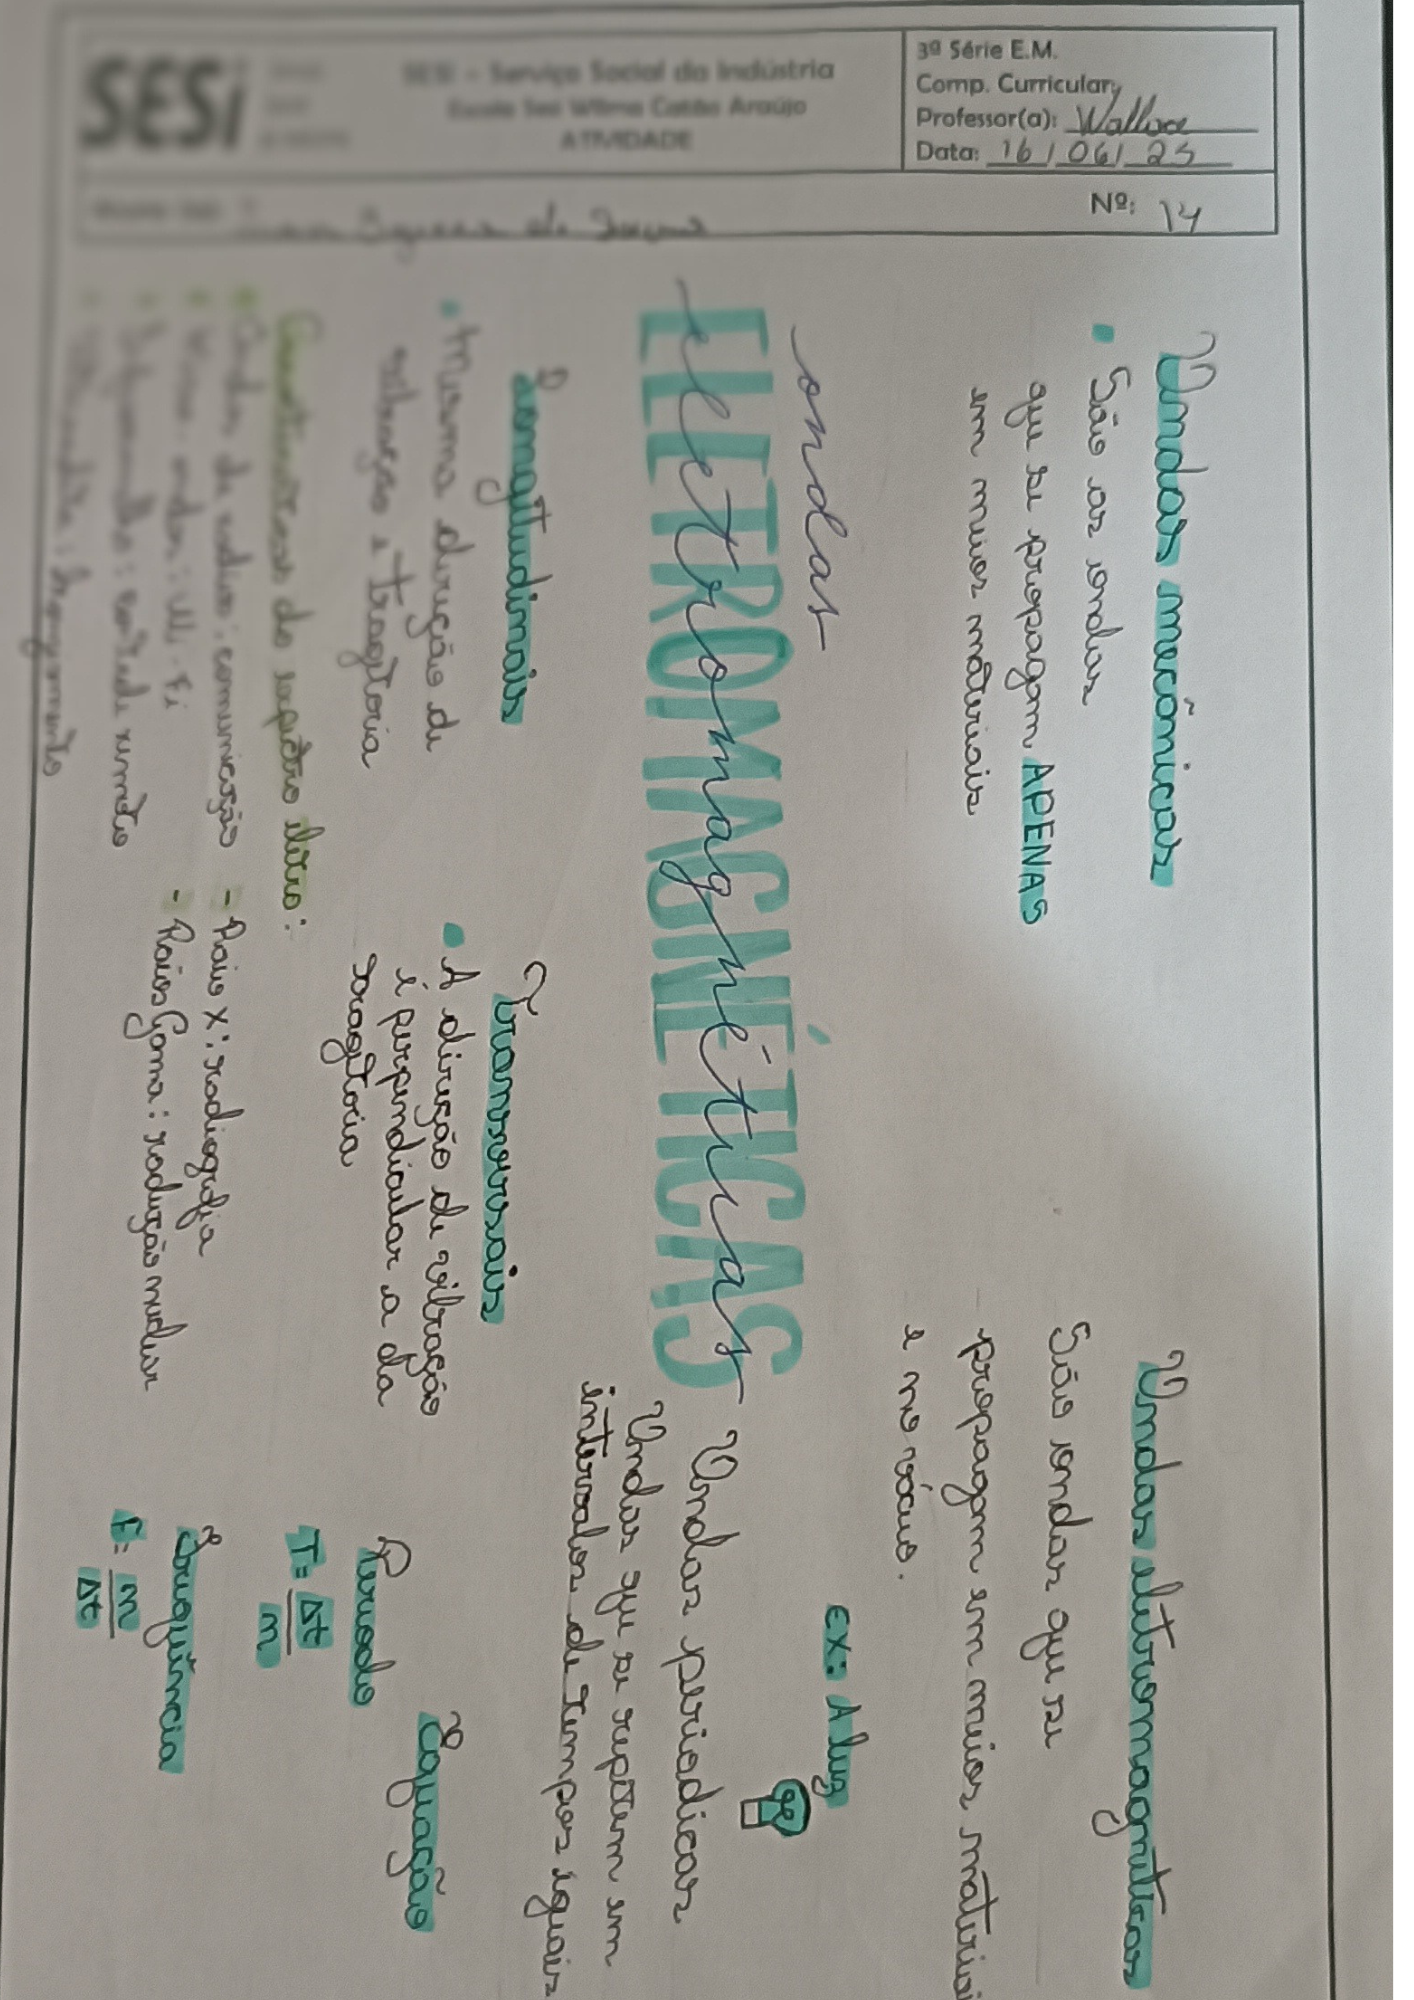 SESI
SESI - Serviço Social da Indústria
Escola Sesi Wilma Catão Araújo
ATIVIDADE
3ª Série E.M.
Comp. Curricular
Professor(a): Wallace
Data: 16/06/25
Nº: 14
Ondas mecânicas
• São as ondas
que se propagam APENAS
em meios materiais
Ondas eletromagnéticas
São ondas que se
propagam em meios materiai
e no vácuo.
ex: A luz
ondas
ELETROMAGNÉTICAS
eletromagnéticas
Ondas periodicas
Ondas que se repetem em
intervalos de tempos iguais
Longitudinais
• Mesma direção de
vibração e tragetoria
Transversais
• A direção de vibração
é perpendicular a da
tragetoria
Equação
Periodo
T = Δt
n
Frequência
F = n
Δt
Características do espectro eletro:
Ondas de radio: comunicação
Micro-ondas: Wi-Fi
Infravermelho: controle remoto
Ultravioleta: bronzeamento
- Raio X: radiografia
- Raios Gama: radiação nuclear